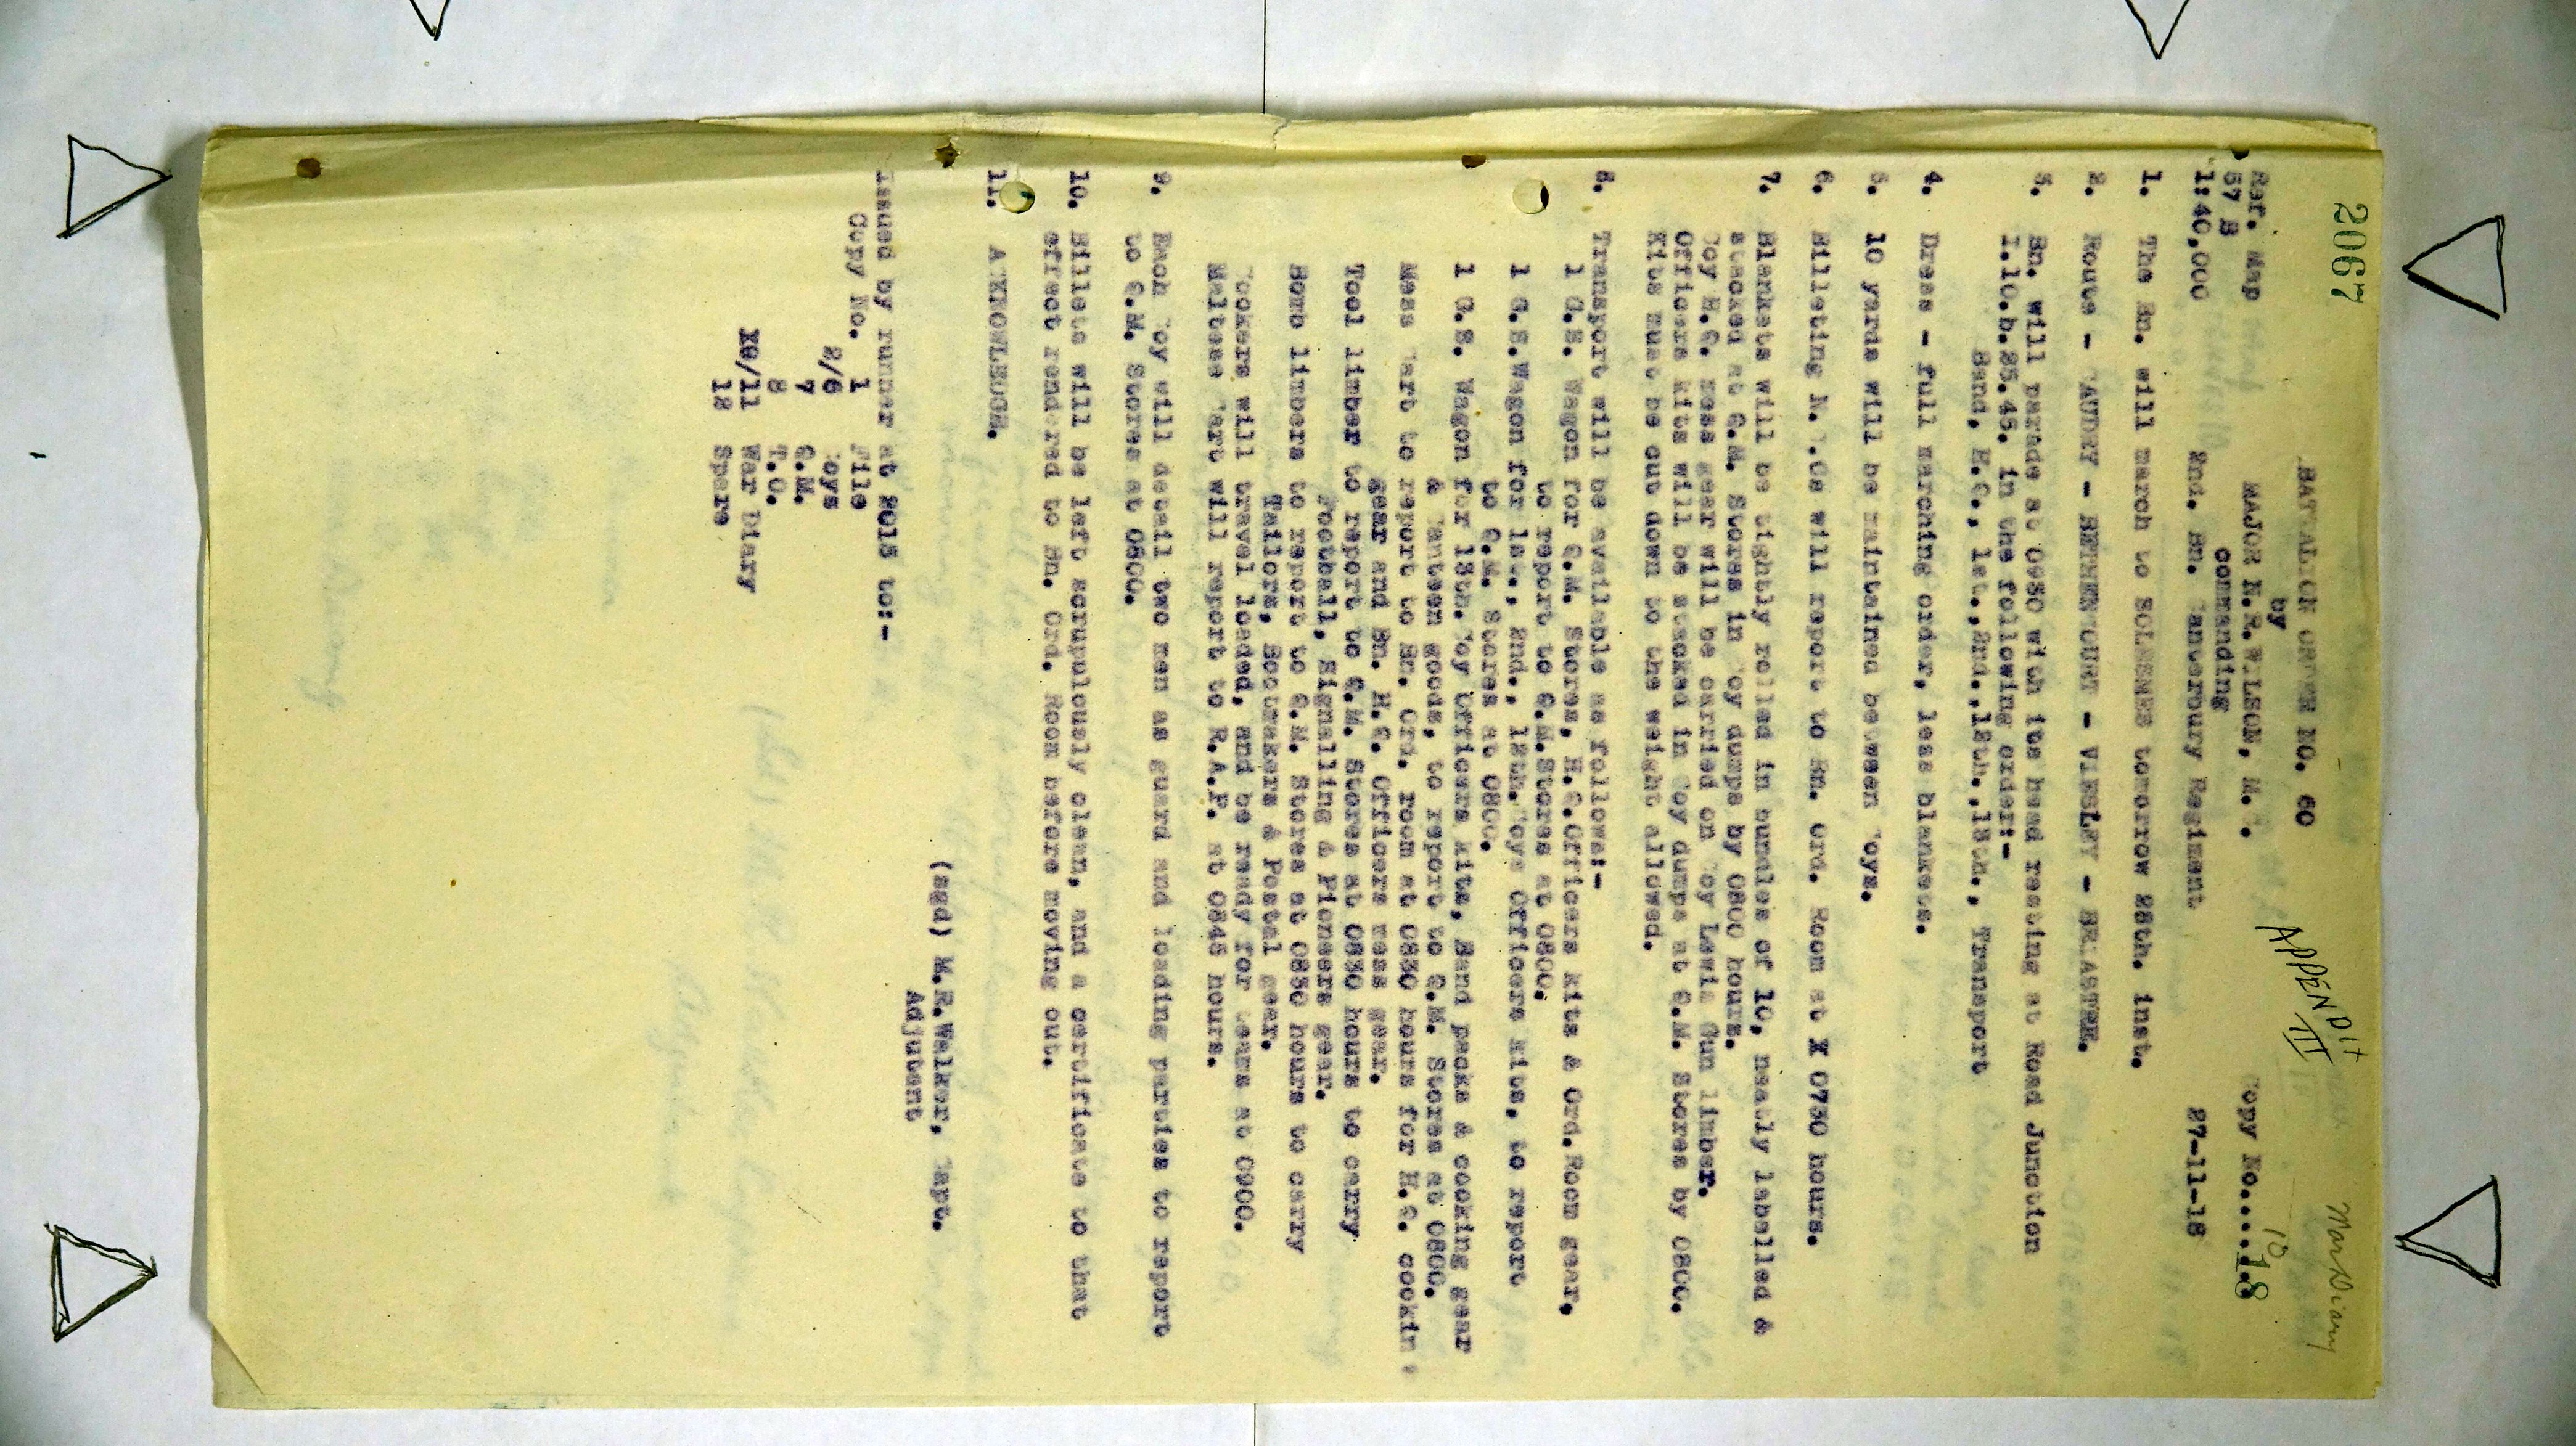 2067
War Diary
APPENDIX
III
BATTALION ORDER NO. 60
by
Ref. Map
MAJOR N.R.WILSON, M.C.
Copy No......10
18
57 B
commanding
1:40,000
2nd. Bn. Canterbury Regiment
27-11-18
1. The Bn. will march to SOLESMES tomorrow 28th. inst.
2. Route - CAUDRY - BETHENCOURT - VIESLY - BRIASTRE.
3. Bn. will parade at 0930 with its head resting at Road Junction
I.10.b.25.45. in the following order:-
Band, H.Q., 1st.,2nd.,12th.,13th., Transport
4. Dress - full marching order, less blankets.
5. 10 yards will be maintained between Coys.
6. Billeting N.C.Os will report to Bn. Ord. Room at X 0730 hours.
7. Blankets will be tightly rolled in bundles of 10, neatly labelled &
stacked at Q.M. Stores in Coy dumps by 0800 hours.
Coy H.Q. mess gear will be carried on Coy Lewis Gun limber.
Officers kits will be stacked in Coy dumps at Q.M. Stores by 0800.
Kits must be cut down to the weight allowed.
8. Transport will be available as follows:-
1 G.S. Wagon for Q.M. Stores, H.Q.Officers kits & Ord.Room gear,
to report to Q.M.Stores at 0800.
1 G.S.Wagon for 1st., 2nd., 12th. Coys Officers kits, to report
to Q.M. Stores at 0800.
1 G.S. Wagon for 13th. Coy Officers kits, Band packs & cooking gear
& Canteen goods, to report to Q.M. Stores at 0800.
Mess Cart to report to Bn. Ord. room at 0830 hours for H.Q. cooking
gear and Bn. H.Q. Officers mess gear.
Tool limber to report to Q.M. Stores at 0830 hours to carry
Football, Signalling & Pioneers gear.
Bomb limbers to report to Q.M. Stores at 0830 hours to carry
Tailors, Bootmakers & Postal gear.
Cookers will travel loaded, and be ready for teams at 0900.
Maltese Cart will report to R.A.P. at 0845 hours.
9. Each Coy will detail two men as guard and loading parties to report
to Q.M. Stores at 0800.
10. Billets will be left scrupulously clean, and a certificate to that
effect rendered to Bn. Ord. Room before moving out.
11. ACKNOWLEDGE.
(sgd) M.R.Walker, Capt.
Adjutant
Issued by runner at 2015 to:-
Copy No. 1 File
2/6 Coys
7 Q.M.
8 T.O.
X9/11 War Diary
12 Spare